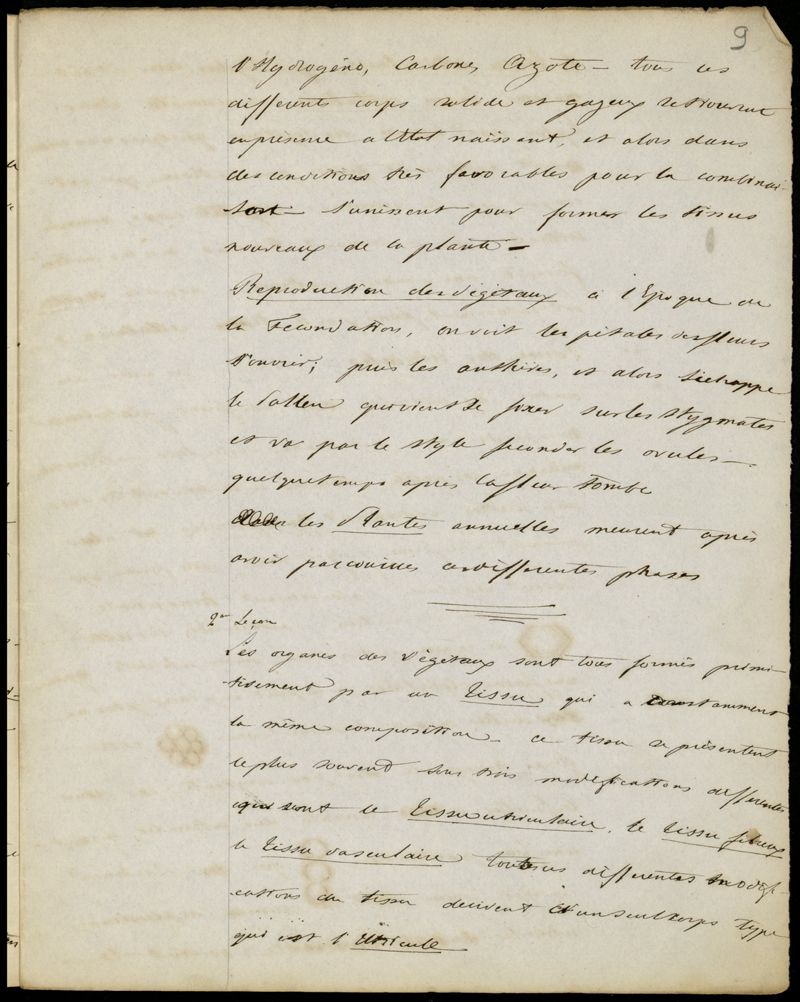 9
l'Hydrogéne, Carbone, Azote – tous ces
differents corps solide et gazeux se trouvent
en présence a l'état naissant, et alors dans
des conditions très favorables pour la combinai-
son – s'unissent pour former les tissus
nouveaux de la plante –
Reproduction des végétaux à l'Epoque de
la Fecondation, on voit les pétales des fleurs
s'ouvrir; puis les anthères, et alors s'echappe
le Pollen qui vient se fixer sur les stygmates
et va par le style feconder les ovules –
quelque temps après la fleur tombe
les Plantes annuelles meurent après
avoir parcouru ces differentes phases
2me Leçon
Les organes des végétaux sont tous formés primi-
tivement par un tissu qui a constamment
la même composition – ce tissu se présentent
le plus souvent sous trois modifications differentes
qui sont le tissu utriculaire, le tissu fibreux
le tissu vasculaire toutes ces differentes modifi-
cations du tissu derivent d'un seul corps type
qui est l'Utricule